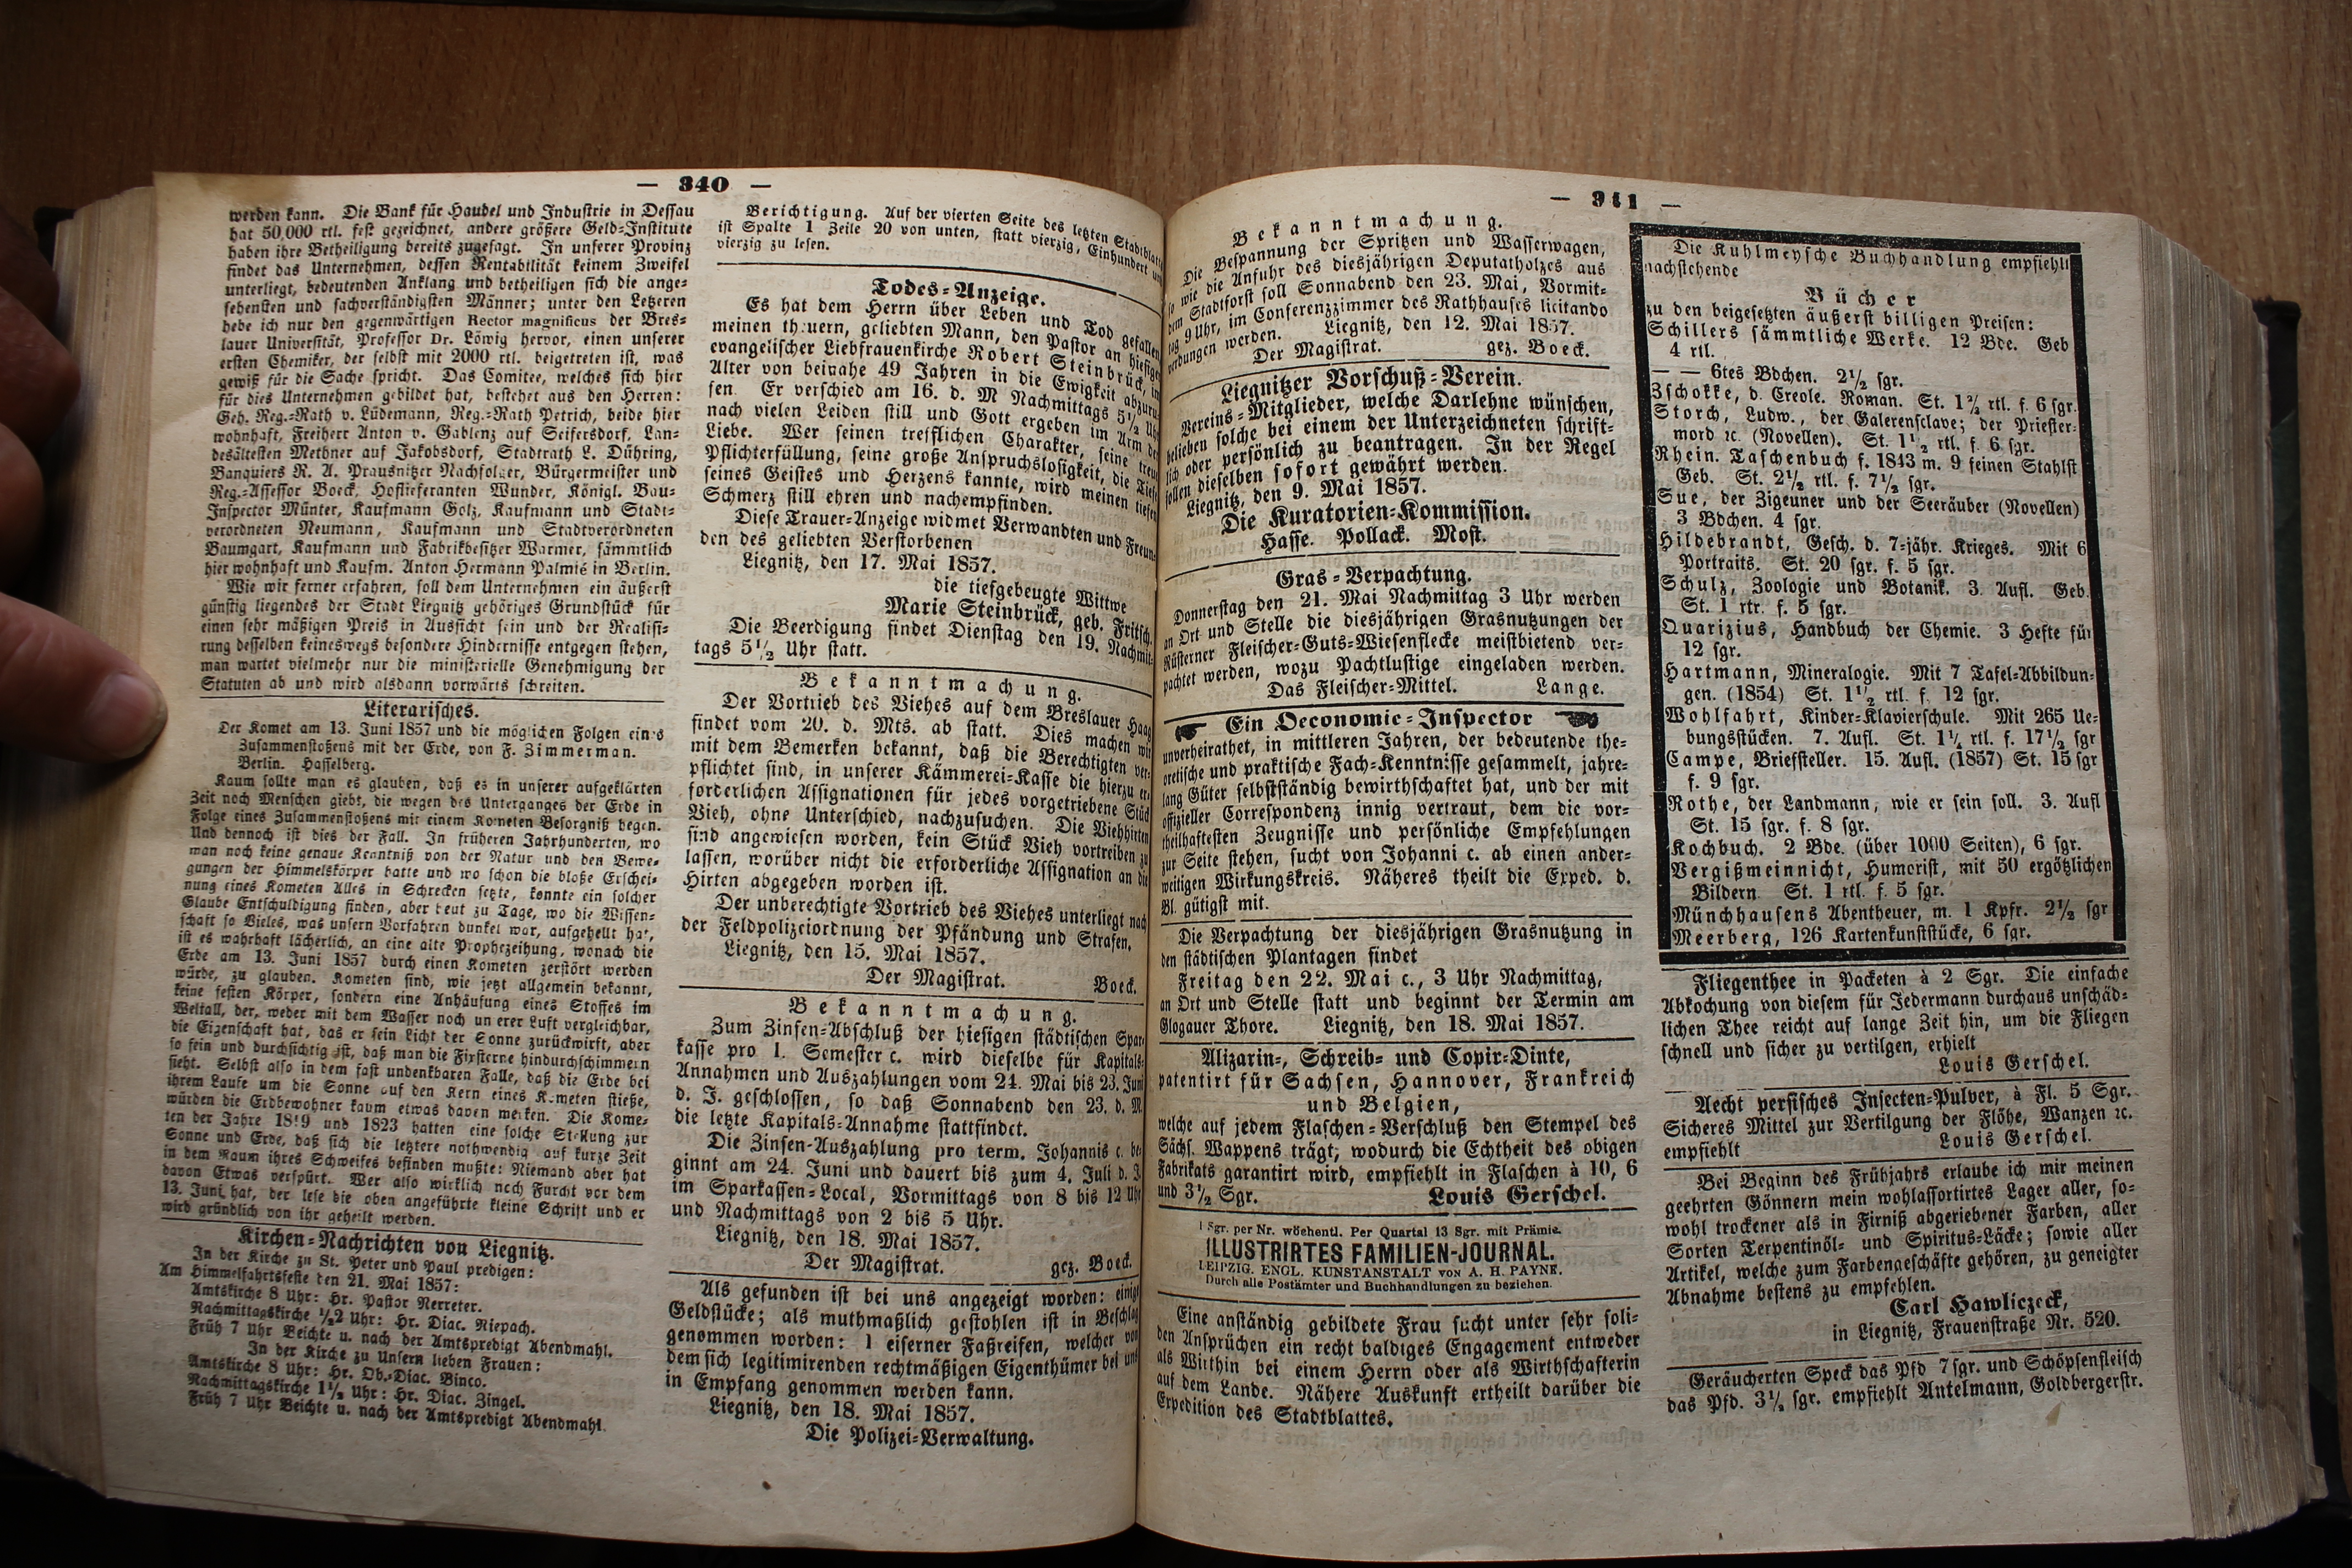 — 340 —
werden kann. Die Bank für Handel und Industrie in Dessau
hat 50,000 rtl. fest gezeichnet, andere größere Geld-Institute
haben ihre Betheiligung bereits zugesagt. In unserer Provinz
findet das Unternehmen, dessen Rentabilität keinem Zweifel
unterliegt, bedeutenden Anklang und betheiligen sich die ange-
sehensten und sachverständigsten Männer; unter den Letzeren
hebe ich nur den gegenwärtigen Rector magnificus der Bres-
lauer Universität, Professor Dr. Löwig hervor, einen unserer
ersten Chemiker, der selbst mit 2000 rtl. beigetreten ist, was
gewiß für die Sache spricht. Das Comitee, welches sich hier
für dies Unternehmen gebildet hat, bestehet aus den Herren:
Geh. Reg.-Rath v. Lüdemann, Reg.-Rath Petrich, beide hier
wohnhaft, Freiherr Anton v. Gablenz auf Seifersdorf, Lan-
desältesten Methner auf Jakobsdorf, Stadtrath L. Dühring,
Banquiers R. A. Prausnitzer Nachfolger, Bürgermeister und
Reg.-Assessor Boeck, Hoflieferanten Wunder, Königl. Bau-
Inspector Münter, Kaufmann Golz, Kaufmann und Stadt-
verordneten Neumann, Kaufmann und Stadtverordneten
Baumgart, Kaufmann und Fabrikbesitzer Warmer, sämmtlich
hier wohnhaft und Kaufm. Anton Hermann Palmié in Berlin.
Wie wir ferner erfahren, soll dem Unternehmen ein äußerst
günstig liegendes der Stadt Liegnitz gehöriges Grundstück für
einen sehr mäßigen Preis in Aussicht sein und der Realisi-
rung desselben keineswegs besondere Hindernisse entgegen stehen,
man wartet vielmehr nur die ministerielle Genehmigung der
Statuten ab und wird alsdann vorwärts schreiten.
Literarisches.
Der Komet am 13. Juni 1857 und die möglichen Folgen eines
Zusammenstoßens mit der Erde, von F. Zimmerman.
Berlin. Hasselberg.
Kaum sollte man es glauben, daß es in unserer aufgeklärten
Zeit noch Menschen giebt, die wegen des Unterganges der Erde in
Folge eines Zusammenstoßens mit einem Kometen Besorgniß hegen.
Und dennoch ist dies der Fall. In früheren Jahrhunderten, wo
man noch keine genaue Kenntniß von der Natur und den Bewe-
gungen der Himmelskörper hatte und wo schon die bloße Erschei-
nung eines Kometen Alles in Schrecken setzte, konnte ein solcher
Glaube Entschuldigung finden, aber heut zu Tage, wo die Wissen-
schaft so Vieles, was unsern Vorfahren dunkel war, aufgehellt hat,
ist es wahrhaft lächerlich, an eine alte Prophezeihung, wonach die
Erde am 13. Juni 1857 durch einen Kometen zerstört werden
würde, zu glauben. Kometen sind, wie jetzt allgemein bekannt,
keine festen Körper, sondern eine Anhäufung eines Stoffes im
Weltall, der, weder mit dem Wasser noch unserer Luft vergleichbar,
die Eigenschaft hat, das er sein Licht der Sonne zurückwirft, aber
so fein und durchsichtig ist, daß man die Fixsterne hindurchschimmern
sieht. Selbst also in dem fast undenkbaren Falle, daß die Erde bei
ihrem Laufe um die Sonne auf den Kern eines Kometen stieße,
würden die Erdbewohner kaum etwas davon merken. Die Kome-
ten der Jahre 1819 und 1823 hatten eine solche Stellung zur
Sonne und Erde, daß sich die letztere nothwendig auf kurze Zeit
in dem Raum ihres Schweifes befinden mußte: Niemand aber hat
davon Etwas verspürt. Wer also wirklich noch Furcht vor dem
13. Juni hat, der lese die oben angeführte kleine Schrift und er
wird gründlich von ihr geheilt werden.
Kirchen-Nachrichten von Liegnitz.
In der Kirche zu St. Peter und Paul predigen:
Am Himmelfahrtsfeste den 21. Mai 1857:
Amtskirche 8 Uhr: Hr. Pastor Nerreter.
Nachmittagskirche 1/2 2 Uhr: Hr. Diac. Riepach.
Früh 7 Uhr Beichte u. nach der Amtspredigt Abendmahl.
In der Kirche zu Unsern lieben Frauen:
Amtskirche 8 Uhr: Hr. Ob.-Diac. Binco.
Nachmittagskirche 1 1/2 Uhr: Hr. Diac. Zingel.
Früh 7 Uhr Beichte u. nach der Amtspredigt Abendmahl.
Berichtigung. Auf der vierten Seite des letzten Stadtblatts
ist Spalte 1 Zeile 20 von unten, statt vierzig, Einhundert und
vierzig zu lesen.
Todes-Anzeige.
Es hat dem Herrn über Leben und Tod gefallen
meinen theuern, geliebten Mann, den Pastor an hiesiger
evangelischer Liebfrauenkirche Robert Steinbrück, im
Alter von beinahe 49 Jahren in die Ewigkeit abzuru-
fen. Er verschied am 16. d. M Nachmittags 5 1/2 Uhr
nach vielen Leiden still und Gott ergeben im Arm der
Liebe. Wer seinen trefflichen Charakter, seine treue
Pflichterfüllung, seine große Anspruchslosigkeit, die Tiefe
seines Geistes und Herzens kannte, wird meinen tiefen
Schmerz still ehren und nachempfinden.
Diese Trauer-Anzeige widmet Verwandten und Freun-
den des geliebten Verstorbenen
Liegnitz, den 17. Mai 1857.
die tiefgebeugte Wittwe
Marie Steinbrück, geb. Fritsch.
Die Beerdigung findet Dienstag den 19. Nachmit-
tags 5 1/2 Uhr statt.
Bekanntmachung.
Der Vortrieb des Viehes auf dem Breslauer Haag
findet vom 20. d. Mts. ab statt. Dies machen wir
mit dem Bemerken bekannt, daß die Berechtigten ver-
pflichtet sind, in unserer Kämmerei-Kasse die hierzu er-
forderlichen Assignationen für jedes vorgetriebene Stück
Vieh, ohne Unterschied, nachzusuchen. Die Viehhirten
sind angewiesen worden, kein Stück Vieh vortreiben zu
lassen, worüber nicht die erforderliche Assignation an die
Hirten abgegeben worden ist.
Der unberechtigte Vortrieb des Viehes unterliegt nach
der Feldpolizeiordnung der Pfändung und Strafen.
Liegnitz, den 15. Mai 1857.
Der Magistrat. Boeck.
Bekanntmachung.
Zum Zinsen-Abschluß der hiesigen städtischen Spar-
kasse pro 1. Semester c. wird dieselbe für Kapitals-
Annahmen und Auszahlungen vom 24. Mai bis 23. Juni
d. J. geschlossen, so daß Sonnabend den 23. d. M.
die letzte Kapitals-Annahme stattfindet.
Die Zinsen-Auszahlung pro term. Johannis c. be-
ginnt am 24. Juni und dauert bis zum 4. Juli d. J.
im Sparkassen-Local, Vormittags von 8 bis 12 Uhr
und Nachmittags von 2 bis 5 Uhr.
Liegnitz, den 18. Mai 1857.
Der Magistrat. gez. Boeck.
Als gefunden ist bei uns angezeigt worden: einige
Geldstücke; als muthmaßlich gestohlen ist in Beschlag
genommen worden: 1 eiserner Faßreifen, welcher von
dem sich legitimirenden rechtmäßigen Eigenthümer bei uns
in Empfang genommen werden kann.
Liegnitz, den 18. Mai 1857.
Die Polizei-Verwaltung.
— 341 —
Bekanntmachung.
Die Bespannung der Spritzen und Wasserwagen,
so wie die Anfuhr des diesjährigen Deputatholzes aus
dem Stadtforst soll Sonnabend den 23. Mai, Vormit-
tag 9 Uhr, im Conferenzzimmer des Rathhauses licitando
verdungen werden. Liegnitz, den 12. Mai 1857.
Der Magistrat. gez. Boeck.
Liegnitzer Vorschuß-Verein.
Vereins-Mitglieder, welche Darlehne wünschen,
belieben solche bei einem der Unterzeichneten schrift-
lich oder persönlich zu beantragen. In der Regel
sollen dieselben sofort gewährt werden.
Liegnitz, den 9. Mai 1857.
Die Kuratorien-Kommission.
Hasse. Pollack. Most.
Gras-Verpachtung.
Donnerstag den 21. Mai Nachmittag 3 Uhr werden
an Ort und Stelle die diesjährigen Grasnutzungen der
Rüsterner Fleischer-Guts-Wiesenflecke meistbietend ver-
pachtet werden, wozu Pachtlustige eingeladen werden.
Das Fleischer-Mittel. Lange.
Ein Oeconomie-Inspector
unverheirathet, in mittleren Jahren, der bedeutende the-
oretische und praktische Fach-Kenntnisse gesammelt, jahre-
lang Güter selbstständig bewirthschaftet hat, und der mit
offizieller Correspondenz innig vertraut, dem die vor-
theilhaftesten Zeugnisse und persönliche Empfehlungen
zur Seite stehen, sucht von Johanni c. ab einen ander-
weitigen Wirkungskreis. Näheres theilt die Exped. d.
Bl. gütigst mit.
Die Verpachtung der diesjährigen Grasnutzung in
den städtischen Plantagen findet
Freitag den 22. Mai c., 3 Uhr Nachmittag,
an Ort und Stelle statt und beginnt der Termin am
Glogauer Thore. Liegnitz, den 18. Mai 1857.
Alizarin-, Schreib- und Copir-Dinte,
patentirt für Sachsen, Hannover, Frankreich
und Belgien,
welche auf jedem Flaschen-Verschluß den Stempel des
Sächs. Wappens trägt, wodurch die Echtheit des obigen
Fabrikats garantirt wird, empfiehlt in Flaschen à 10, 6
und 3 1/2 Sgr. Louis Gerschel.
1 Sgr. per Nr. wöchentl. Per Quartal 13 Sgr. mit Prämie.
ILLUSTRIRTES FAMILIEN-JOURNAL.
LEIPZIG. ENGL. KUNSTANSTALT von A. H. PAYNE.
Durch alle Postämter und Buchhandlungen zu beziehen.
Eine anständig gebildete Frau sucht unter sehr soli-
den Ansprüchen ein recht baldiges Engagement entweder
als Wirthin bei einem Herrn oder als Wirthschafterin
auf dem Lande. Nähere Auskunft ertheilt darüber die
Expedition des Stadtblattes.
Die Kuhlmeysche Buchhandlung empfiehlt
nachstehende
Bücher
zu den beigesetzten äußerst billigen Preisen:
Schillers sämmtliche Werke. 12 Bde. Geb
4 rtl.
— — 6tes Bdchen. 2 1/2 sgr.
Zschokke, d. Creole. Roman. St. 1 2/3 rtl. f. 6 sgr.
Storch, Ludw., der Galerensclave; der Priester-
mord ꝛc. (Novellen). St. 1 1/2 rtl. f. 6 sgr.
Rhein. Taschenbuch f. 1843 m. 9 feinen Stahlst
Geb. St. 2 1/2 rtl. f. 7 1/2 sgr.
Sue, der Zigeuner und der Seeräuber (Novellen)
3 Bdchen. 4 sgr.
Hildebrandt, Gesch. d. 7-jähr. Krieges. Mit 6
Portraits. St. 20 sgr. f. 5 sgr.
Schulz, Zoologie und Botanik. 3. Aufl. Geb.
St. 1 rtr. f. 5 sgr.
Quarizius, Handbuch der Chemie. 3 Hefte für
12 sgr.
Hartmann, Mineralogie. Mit 7 Tafel-Abbildun-
gen. (1854) St. 1 1/2 rtl. f. 12 sgr.
Wohlfahrt, Kinder-Klavierschule. Mit 265 Ue-
bungsstücken. 7. Aufl. St. 1 1/4 rtl. f. 17 1/2 sgr
Campe, Briefsteller. 15. Aufl. (1857) St. 15 sgr
f. 9 sgr.
Rothe, der Landmann, wie er sein soll. 3. Aufl
St. 15 sgr. f. 8 sgr.
Kochbuch. 2 Bde. (über 1000 Seiten), 6 sgr.
Vergißmeinnicht, Humorist, mit 50 ergötzlichen
Bildern St. 1 rtl. f. 5 sgr.
Münchhausens Abentheuer, m. 1 Kpfr. 2 1/2 sgr
Meerberg, 126 Kartenkunststücke, 6 sgr.
Fliegenthee in Packeten à 2 Sgr. Die einfache
Abkochung von diesem für Jedermann durchaus unschäd-
lichen Thee reicht auf lange Zeit hin, um die Fliegen
schnell und sicher zu vertilgen, erhielt
Louis Gerschel.
Aecht persisches Insecten-Pulver, à Fl. 5 Sgr.
Sicheres Mittel zur Vertilgung der Flöhe, Wanzen ꝛc.
empfiehlt Louis Gerschel.
Bei Beginn des Frühjahrs erlaube ich mir meinen
geehrten Gönnern mein wohlassortirtes Lager aller, so-
wohl trockener als in Firniß abgeriebener Farben, aller
Sorten Terpentinöl- und Spiritus-Läcke; sowie aller
Artikel, welche zum Farbengeschäfte gehören, zu geneigter
Abnahme bestens zu empfehlen.
Carl Hawliczeck,
in Liegnitz, Frauenstraße Nr. 520.
Geräucherten Speck das Pfd 7 sgr. und Schöpsenfleisch
das Pfd. 3 1/2 sgr. empfiehlt Antelmann, Goldbergerstr.